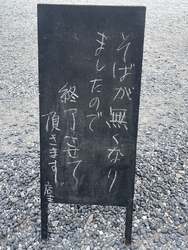 そばが無くなり
ましたので
終了させて
頂きます
店主